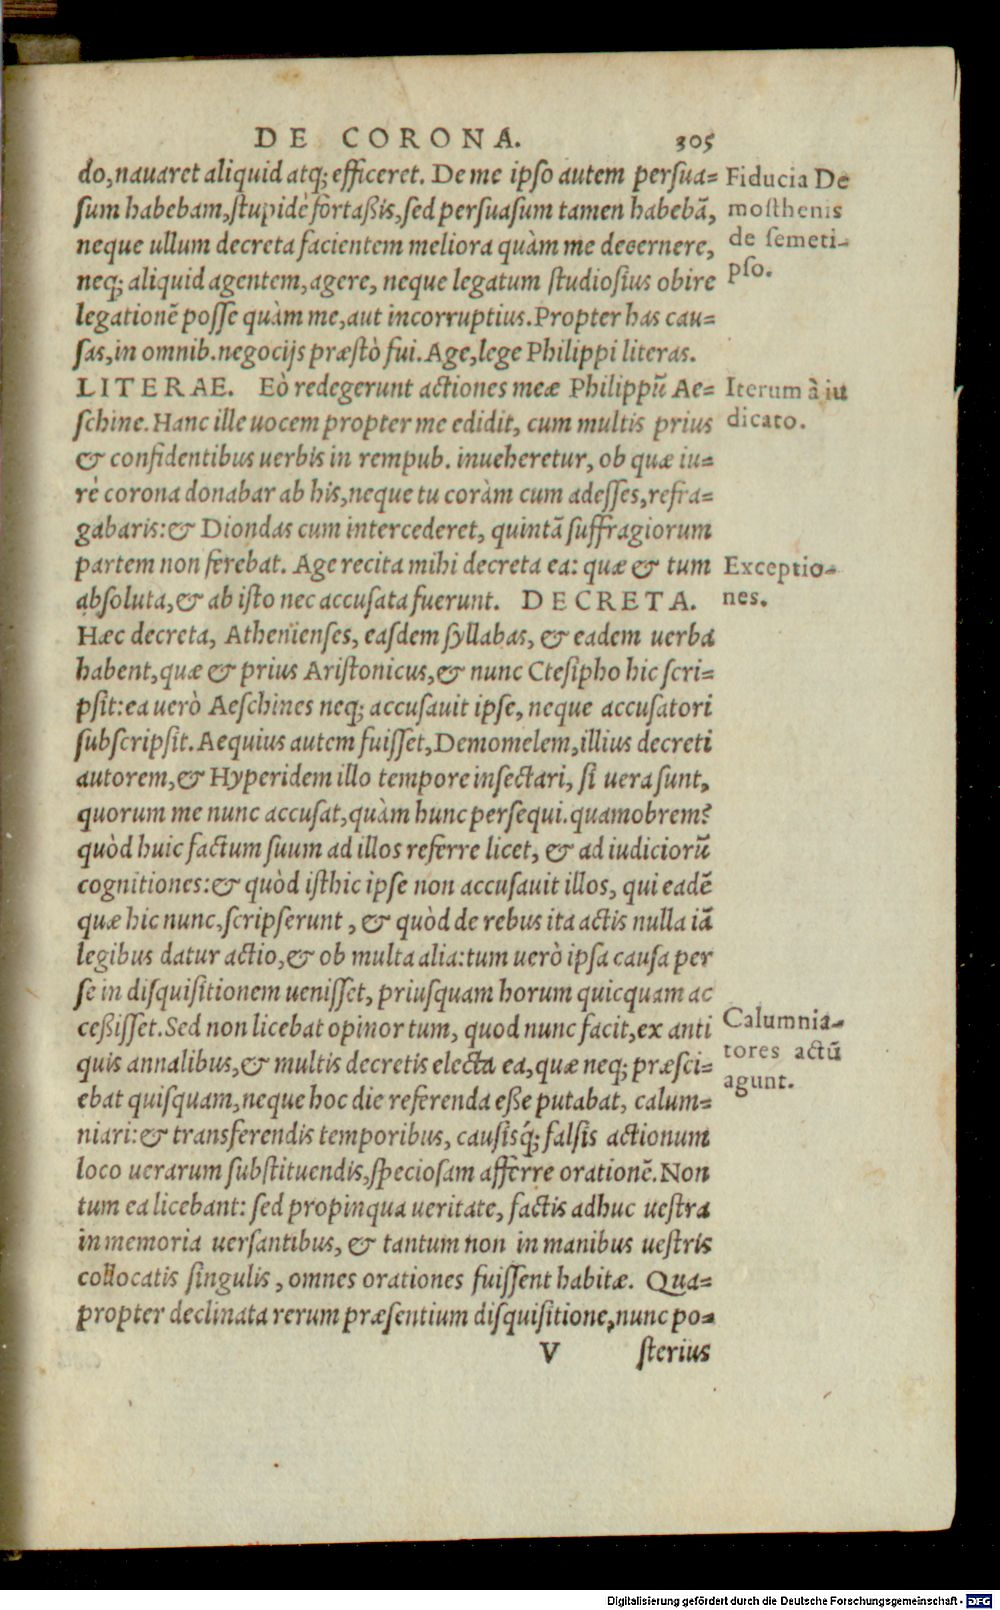 DE CORONA. 305
do, nauaret aliquid atq; efficeret. De me ipso autem persua=
sum habebam, stupidè fortaßis, sed persuasum tamen habebā,
neque ullum decreta facientem meliora quàm me decernere,
neq; aliquid agentem, agere, neque legatum studiosius obire
legationē posse quàm me, aut incorruptius. Propter has cau=
sas, in omnib. negocijs præstò fui. Age, lege Philippi literas.
LITERAE. Eò redegerunt actiones meæ Philippū Ae=
schine. Hanc ille uocem propter me edidit, cum multis prius
& confidentibus uerbis in rempub. inueheretur, ob quæ iu=
rè corona donabar ab his, neque tu coràm cum adesses, refra=
gabaris: & Diondas cum intercederet, quintā suffragiorum
partem non ferebat. Age recita mihi decreta ea: quæ & tum
absoluta, & ab isto nec accusata fuerunt. DECRETA.
Hæc decreta, Athenienses, easdem syllabas, & eadem uerba
habent, quæ & prius Aristonicus, & nunc Ctesipho hic scri=
psit: ea uerò Aeschines neq; accusauit ipse, neque accusatori
subscripsit. Aequius autem fuisset, Demomelem, illius decreti
autorem, & Hyperidem illo tempore insectari, si uera sunt,
quorum me nunc accusat, quàm hunc persequi. quamobrem?
quòd huic factum suum ad illos referre licet, & ad iudiciorū
cognitiones: & quòd isthic ipse non accusauit illos, qui eadē
quæ hic nunc, scripserunt, & quòd de rebus ita actis nulla iā
legibus datur actio, & ob multa alia: tum uerò ipsa causa per
se in disquisitionem uenisset, priusquam horum quicquam ac
ceßisset. Sed non licebat opinor tum, quod nunc facit, ex anti
quis annalibus, & multis decretis electa ea, quæ neq; præsci=
ebat quisquam, neque hoc die referenda eße putabat, calum=
niari: & transferendis temporibus, causisq́; falsis actionum
loco uerarum substituendis, speciosam afferre orationē. Non
tum ea licebant: sed propinqua ueritate, factis adhuc uestra
in memoria uersantibus, & tantum non in manibus uestris
collocatis singulis, omnes orationes fuissent habitæ. Qua=
propter declinata rerum præsentium disquisitione, nunc po=
V sterius
Fiducia De
mosthenis
de semeti-
pso.
Iterum à iu
dicato.
Exceptio-
nes.
Calumnia-
tores actū
agunt.
Digitalisierung gefördert durch die Deutsche Forschungsgemeinschaft - DFG